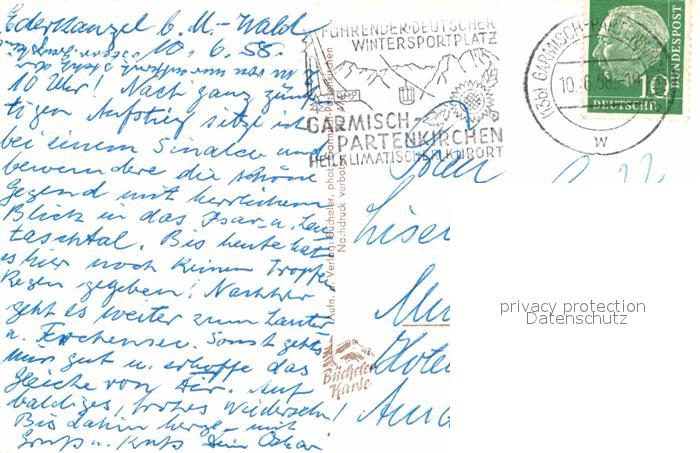 Ederkanzel b. M.-Wald
10.6.58.
10 Uhr! Nach ganz zünf-
tigen Aufstieg sitze ich
bei einem Sinalco und
bewundere die schöne
Gegend mit herrlichem
Blick in das Isar- u. Leu-
taschtal. Bis heute hat
es hier noch keinen Tropfen
Regen gegeben! Nachher
geht es weiter zum Lauter-
u. Ferchensee. Sonst gehts
mir gut u. erhoffe das
gleiche von Dir. Auf
baldiges, frohes Wiedersehn!
Bis dahin herzl. mit
Gruß u. Kuß Dein Oskar
FÜHRENDER DEUTSCHER
WINTERSPORTPLATZ
GARMISCH-
PARTENKIRCHEN
HEILKLIMATISCHER KURORT
(13b) GARMISCH-PARTENK
10.6.58
w
10
DEUTSCHE
BUNDESPOST
Aufn. u. Verlag: Bücheler, phot.
Nachdruck verboten
Bücheler
Karte
privacy protection
Datenschutz